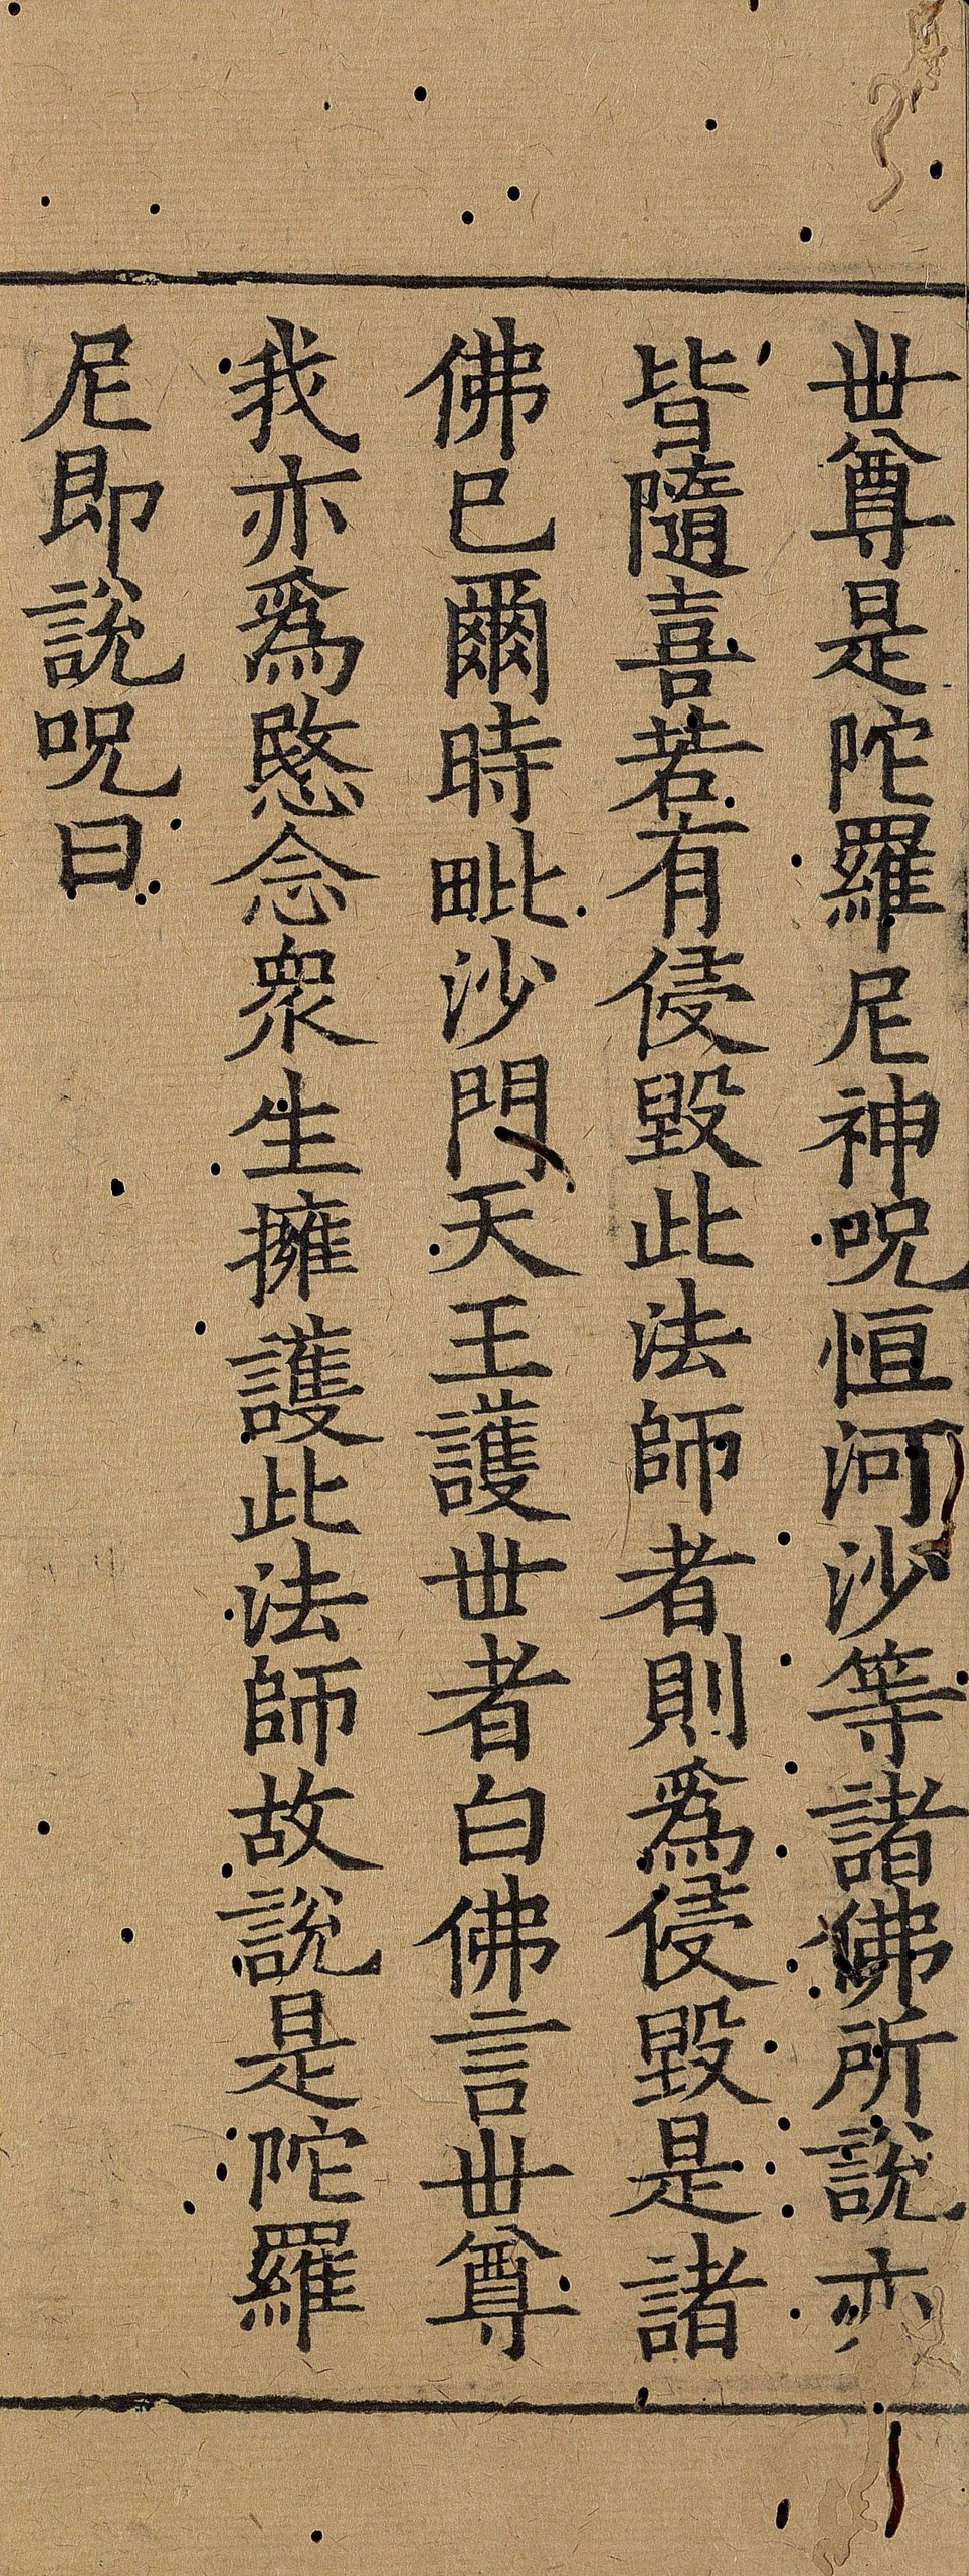 世尊是陀羅尼神呪恒河沙等諸佛所說亦
皆隨喜若有侵毀此法師者則爲侵毀是諸
佛已爾時毗沙門天王護世者白佛言世尊
我亦爲愍念衆生擁護此法師故說是陀羅
尼即說呪曰